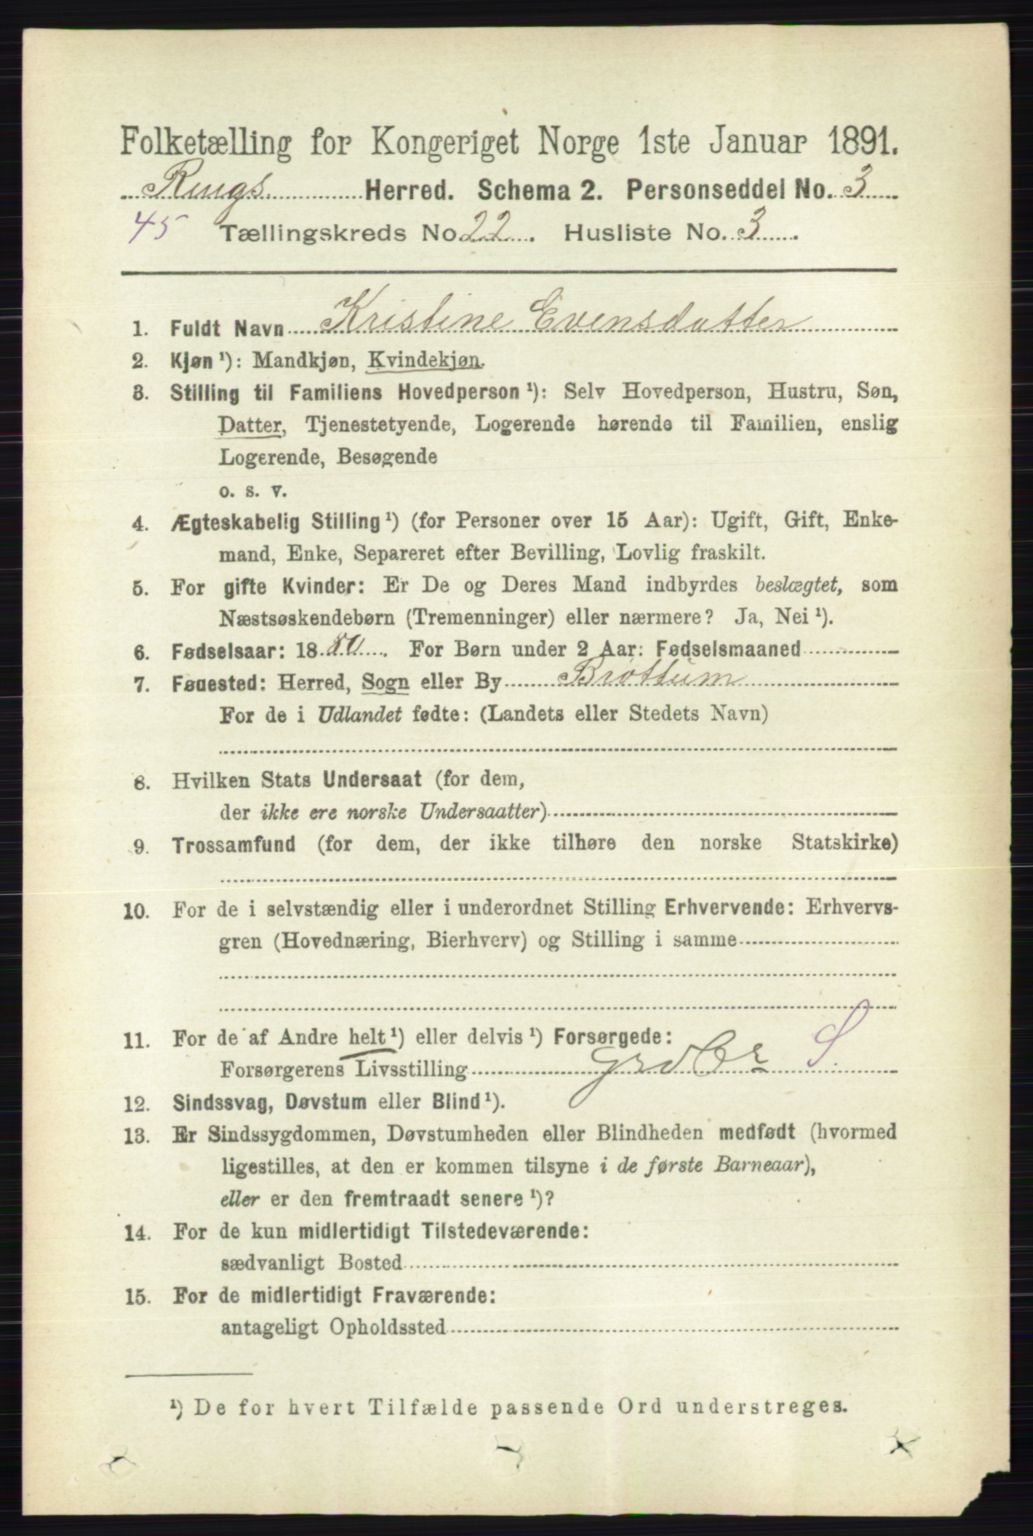 Folketælling for Kongeriget Norge 1ste Januar 1891.
Rings Herred. Schema 2. Personseddel No. 3
45 Tællingskreds No. 22. Husliste No. 3
1. Fuldt Navn Kristine Evensdatter
2. Kjøn ¹): Mandkjøn, Kvindekjøn.
3. Stilling til Familiens Hovedperson ¹): Selv Hovedperson, Hustru, Søn,
Datter, Tjenestetyende, Logerende hørende til Familien, enslig
Logerende, Besøgende
o. s. v.
4. Ægteskabelig Stilling ¹) (for Personer over 15 Aar): Ugift, Gift, Enke-
mand, Enke, Separeret efter Bevilling, Lovlig fraskilt.
5. For gifte Kvinder: Er De og Deres Mand indbyrdes beslægtet, som
Næstsøskendebørn (Tremenninger) eller nærmere? Ja, Nei ¹).
6. Fødselsaar: 1880. For Børn under 2 Aar: Fødselsmaaned
7. Fødested: Herred, Sogn eller By Brøttum
For de i Udlandet fødte: (Landets eller Stedets Navn)
8. Hvilken Stats Undersaat (for dem,
der ikke ere norske Undersaatter)
9. Trossamfund (for dem, der ikke tilhøre den norske Statskirke)
10. For de i selvstændig eller i underordnet Stilling Erhvervende: Erhvervs-
gren (Hovednæring, Bierhverv) og Stilling i samme
11. For de af Andre helt ¹) eller delvis ¹) Forsørgede:
Forsørgerens Livsstilling grdbr S
12. Sindssvag, Døvstum eller Blind ¹).
13. Er Sindssygdommen, Døvstumheden eller Blindheden medfødt (hvormed
ligestilles, at den er kommen tilsyne i de første Barneaar),
eller er den fremtraadt senere ¹)?
14. For de kun midlertidigt Tilstedeværende:
sædvanligt Bosted
15. For de midlertidigt Fraværende:
antageligt Opholdssted
¹) De for hvert Tilfælde passende Ord understreges.